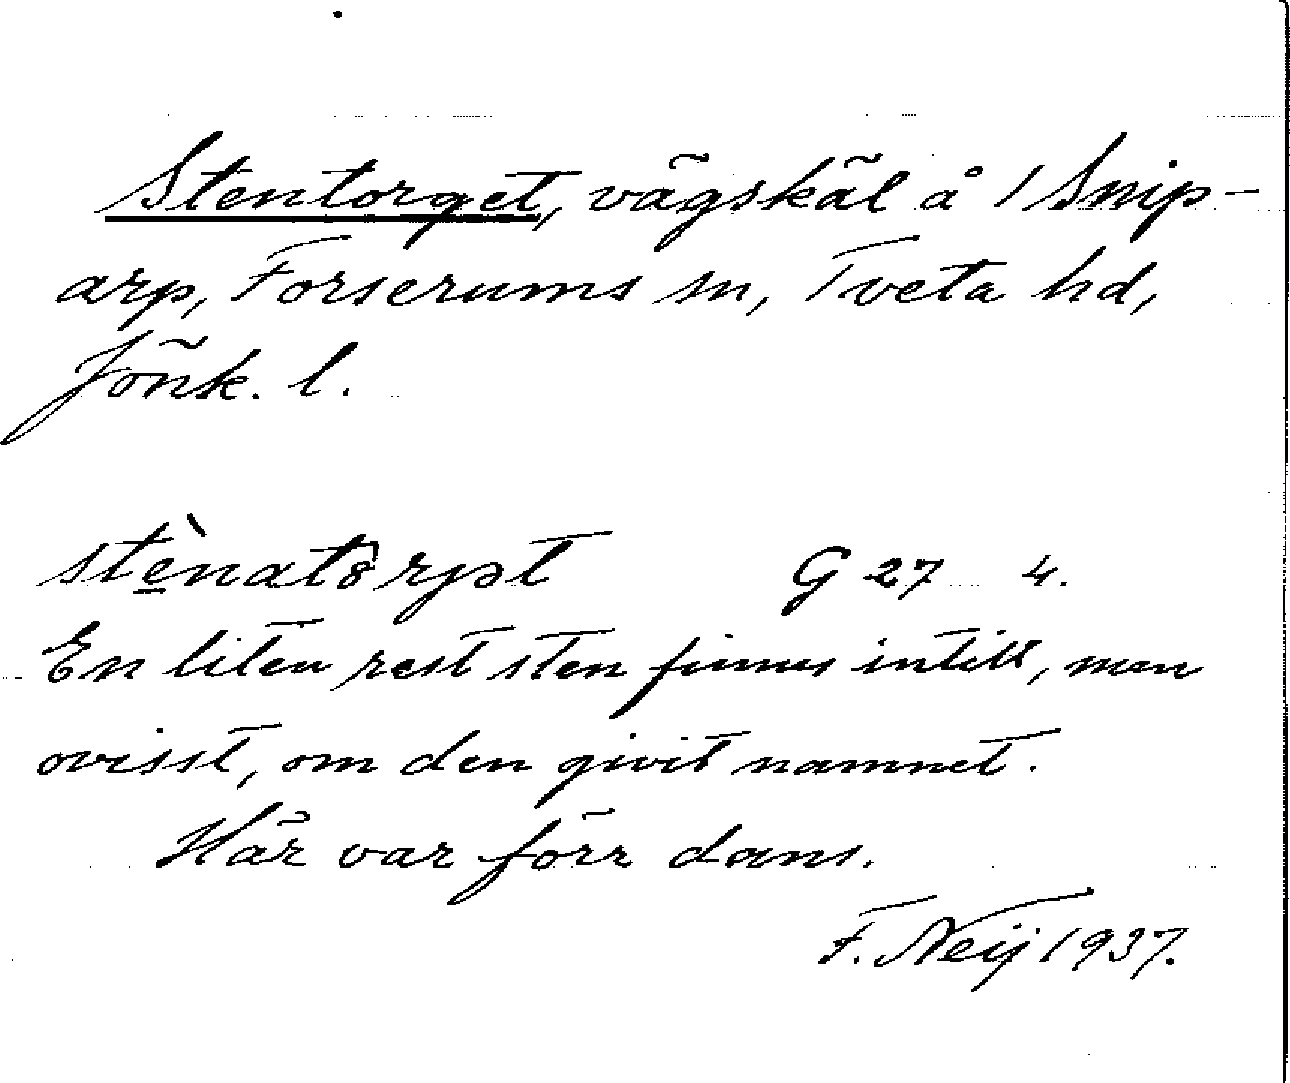 Stentorget, vägskäl å 1 Snip-
arp, Forserums sn, Tveta hd,
Jönk. l.
G 27 4.
En liten rest sten finnes intill, men
ovisst, om den givit namnet.
Här var förr dans.
F. Neij 1937.